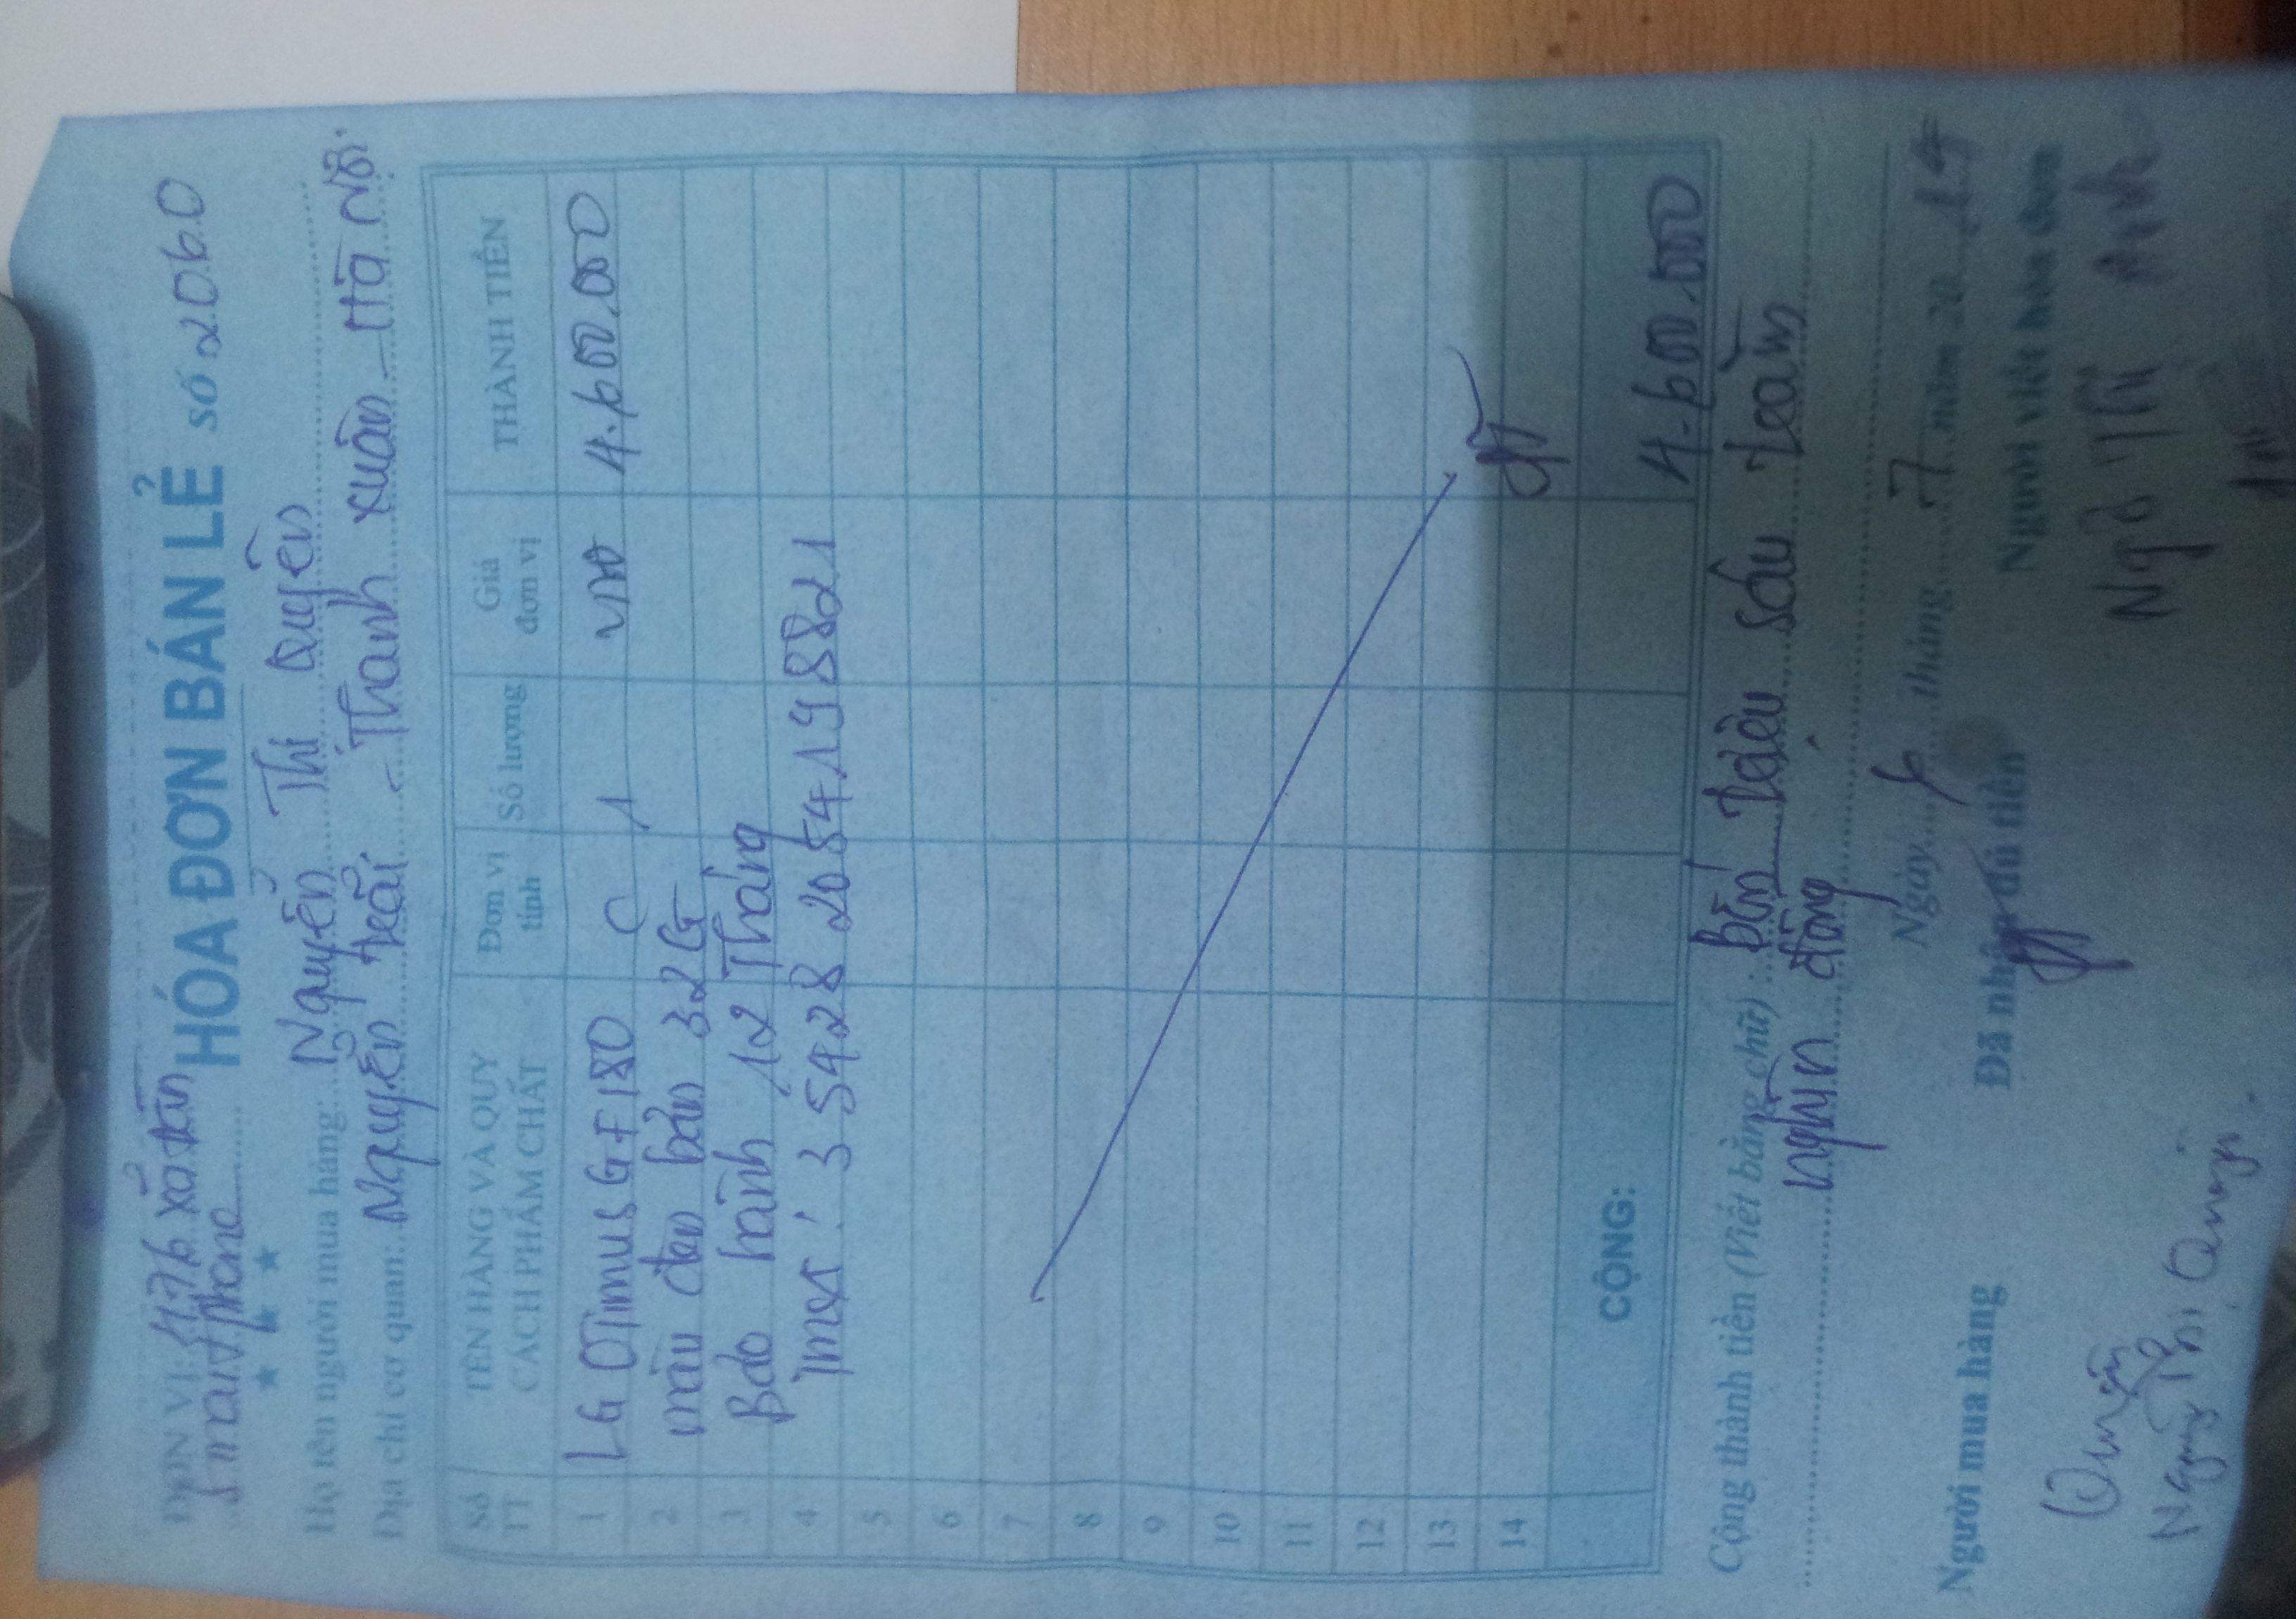 ĐƠN VỊ: 476 xã đàn
smart phone
★ ★ ★
HÓA ĐƠN BÁN LẺ SỐ 2060
Họ tên người mua hàng: Nguyễn Thị Quyên
Địa chỉ cơ quan: Nguyễn trãi - Thanh xuân - Hà Nội
Số TT TÊN HÀNG VÀ QUY CÁCH PHẨM CHẤT Đơn vị tính Số lượng Giá đơn vị THÀNH TIỀN
1 LG OTimus G F180 C 1 VNĐ 4.600.000
2 màu đen bản 32G
3 Bảo hành 12 Tháng
4 Imei: 354282054198821
5
6
7
8
9
10
11
12
13
14
CỘNG: 4.600.000
Cộng thành tiền (Viết bằng chữ): Bốn Triệu sáu Trăm
nghìn đồng
Ngày 6 tháng 7 năm 20
Người mua hàng Đã nhận đủ tiền Người viết hóa đơn
Quyên Ngô Anh
Nguyễn Thị Quyên